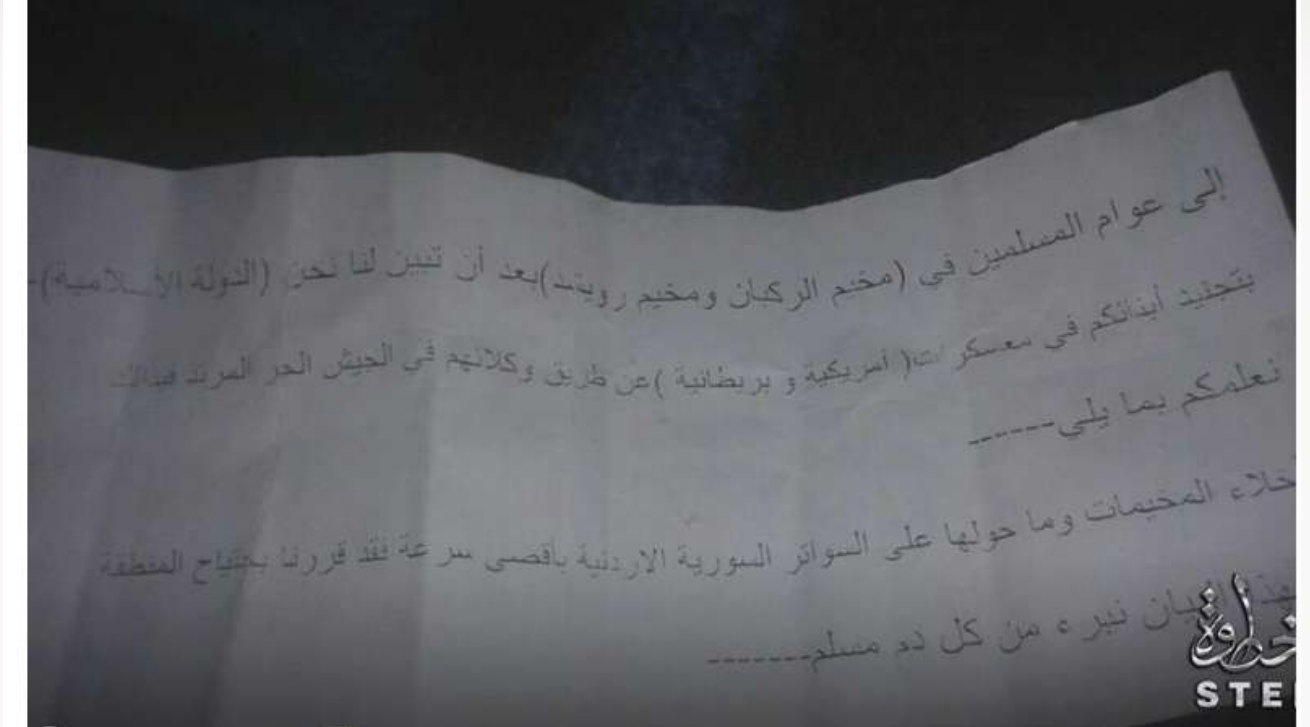 إلى عوام المسلمين في (مخيم الركبان ومخيم رويشد)بعد أن تبين لنا نحن (الدولة الأسلامية)-
بتجنيد أبنائكم في معسكرات( أمريكية و بريطانية )عن طريق وكلائهم في الجيش الحر المرتد
نعلمكم بما يلي------
خلاء المخيمات وما حولها على السواتر السورية الاردنية بأقصى سرعة فقد قررنا بجتياح المنطقة
بهذا البيان نبرء من كل دم مسلم-------
خطوة
STE